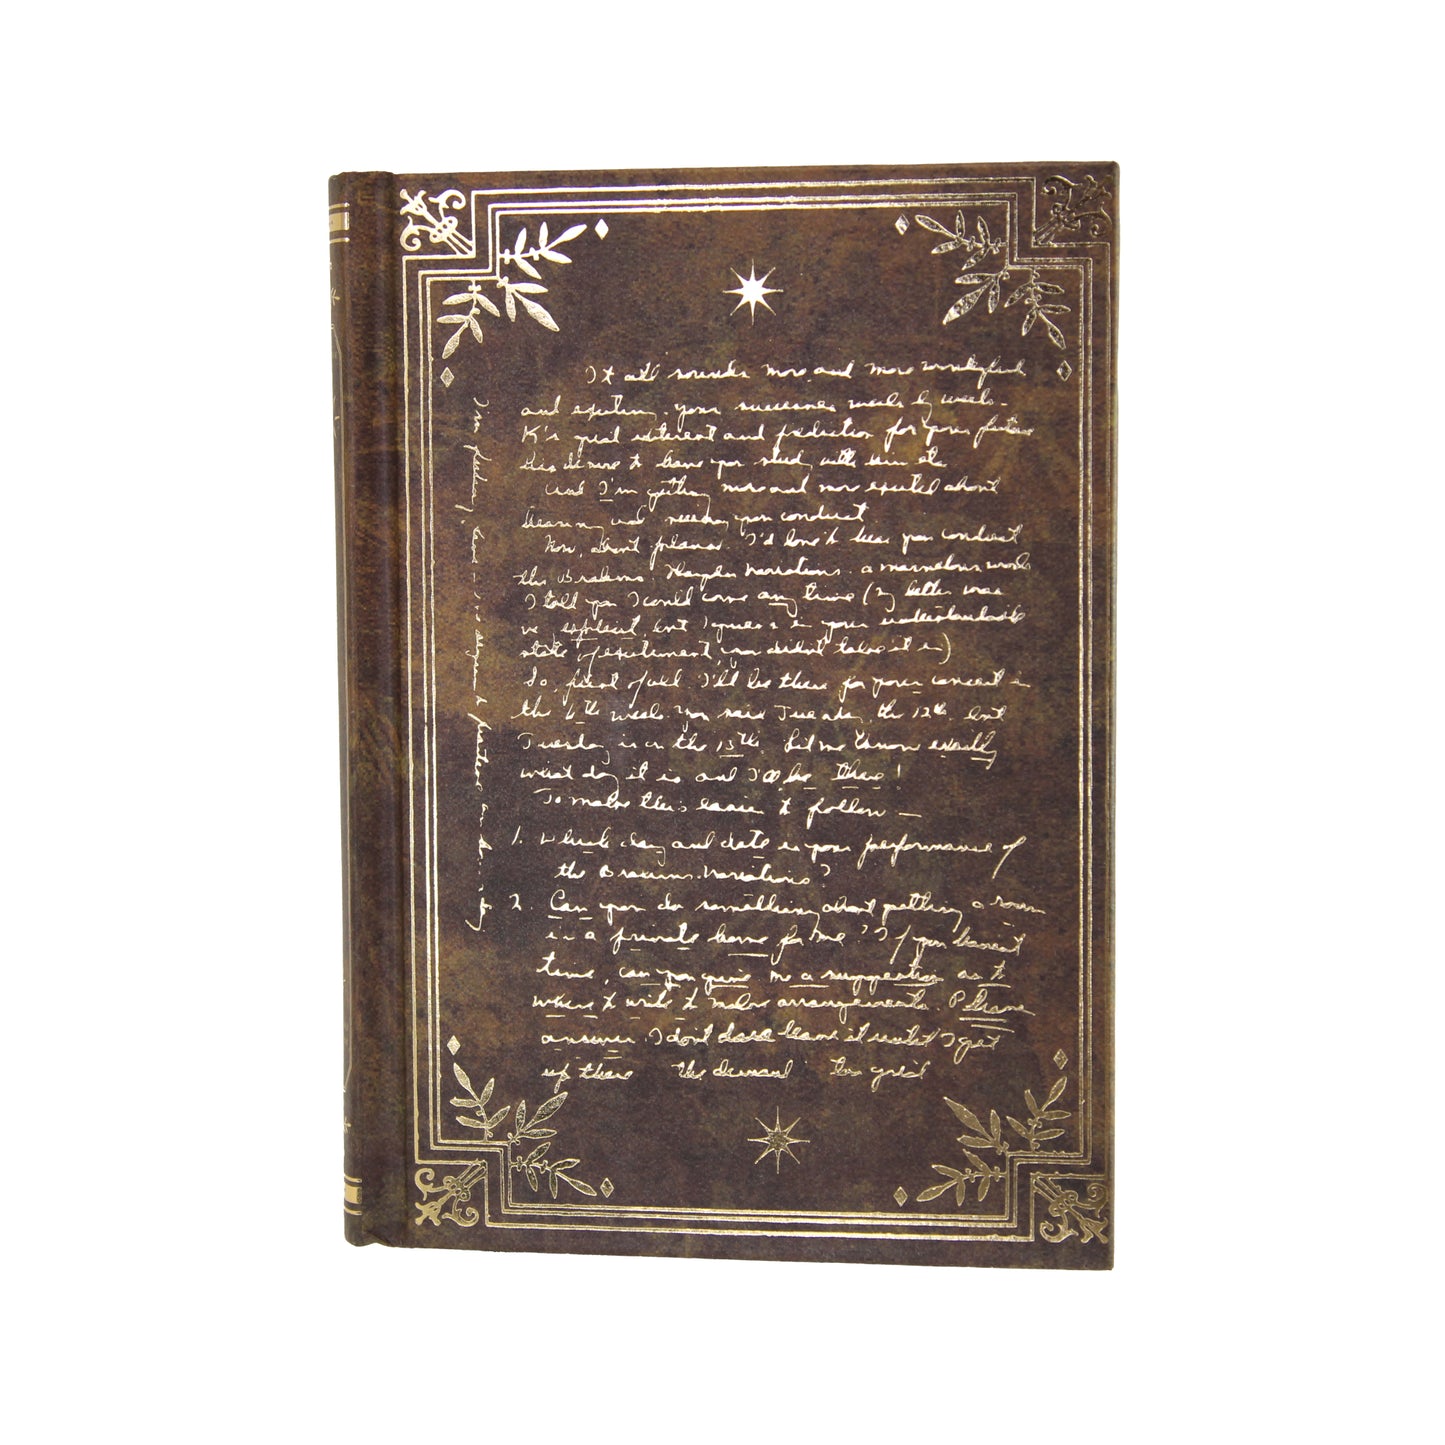 It all sounds more and more wonderful
and exciting. your successes week by week.
K's great interest and prediction for your future
his desire to have you study with him etc
and I'm getting more and more excited about
hearing and seeing you conduct
Now, about plans. I'd love to hear you conduct
the Brahms. Haydn Variations. a marvelous work
I told you I could come any time (my letter was
explicit, but I guess in your understandable
state of excitement you didn't take it in)
So, first of all. I'll be there for your concert in
the 6th week. You said Tuesday, the 12th. but
Tuesday is on the 13th. Let me know exactly
what day it is and I'll be there!
To make this easier to follow —
1. Which day and date is your performance of
the Brahms. Variations?
2. Can you do something about getting a room
in a private home for me? If you haven't
time, can you give me a suggestion as to
where to write to make arrangements. Please
answer. I don't dare leave it until I get
up there the demand too great